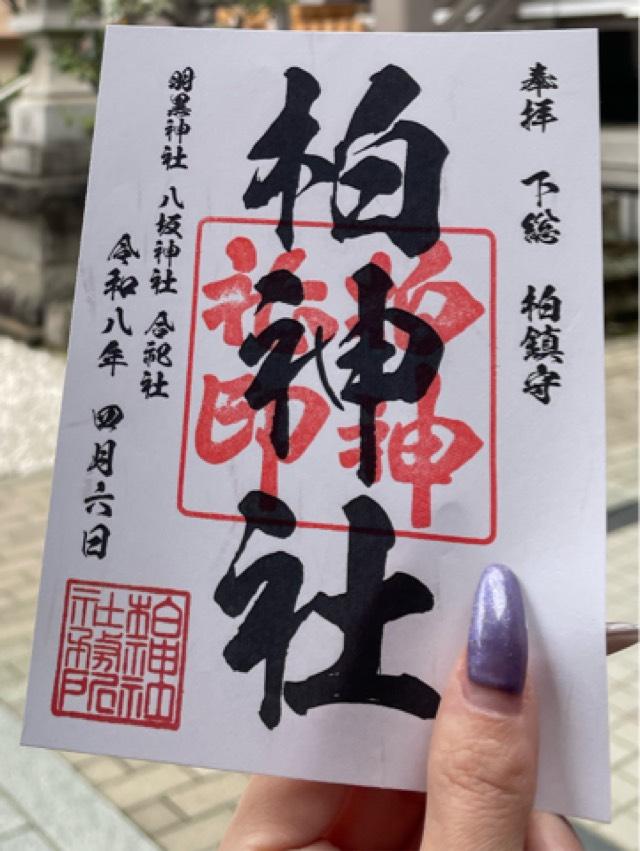 奉拝 下総 柏鎮守
柏神社
柏神
社印
羽黒神社 八坂神社 合祀社
令和八年 四月六日
柏神社
社務所印